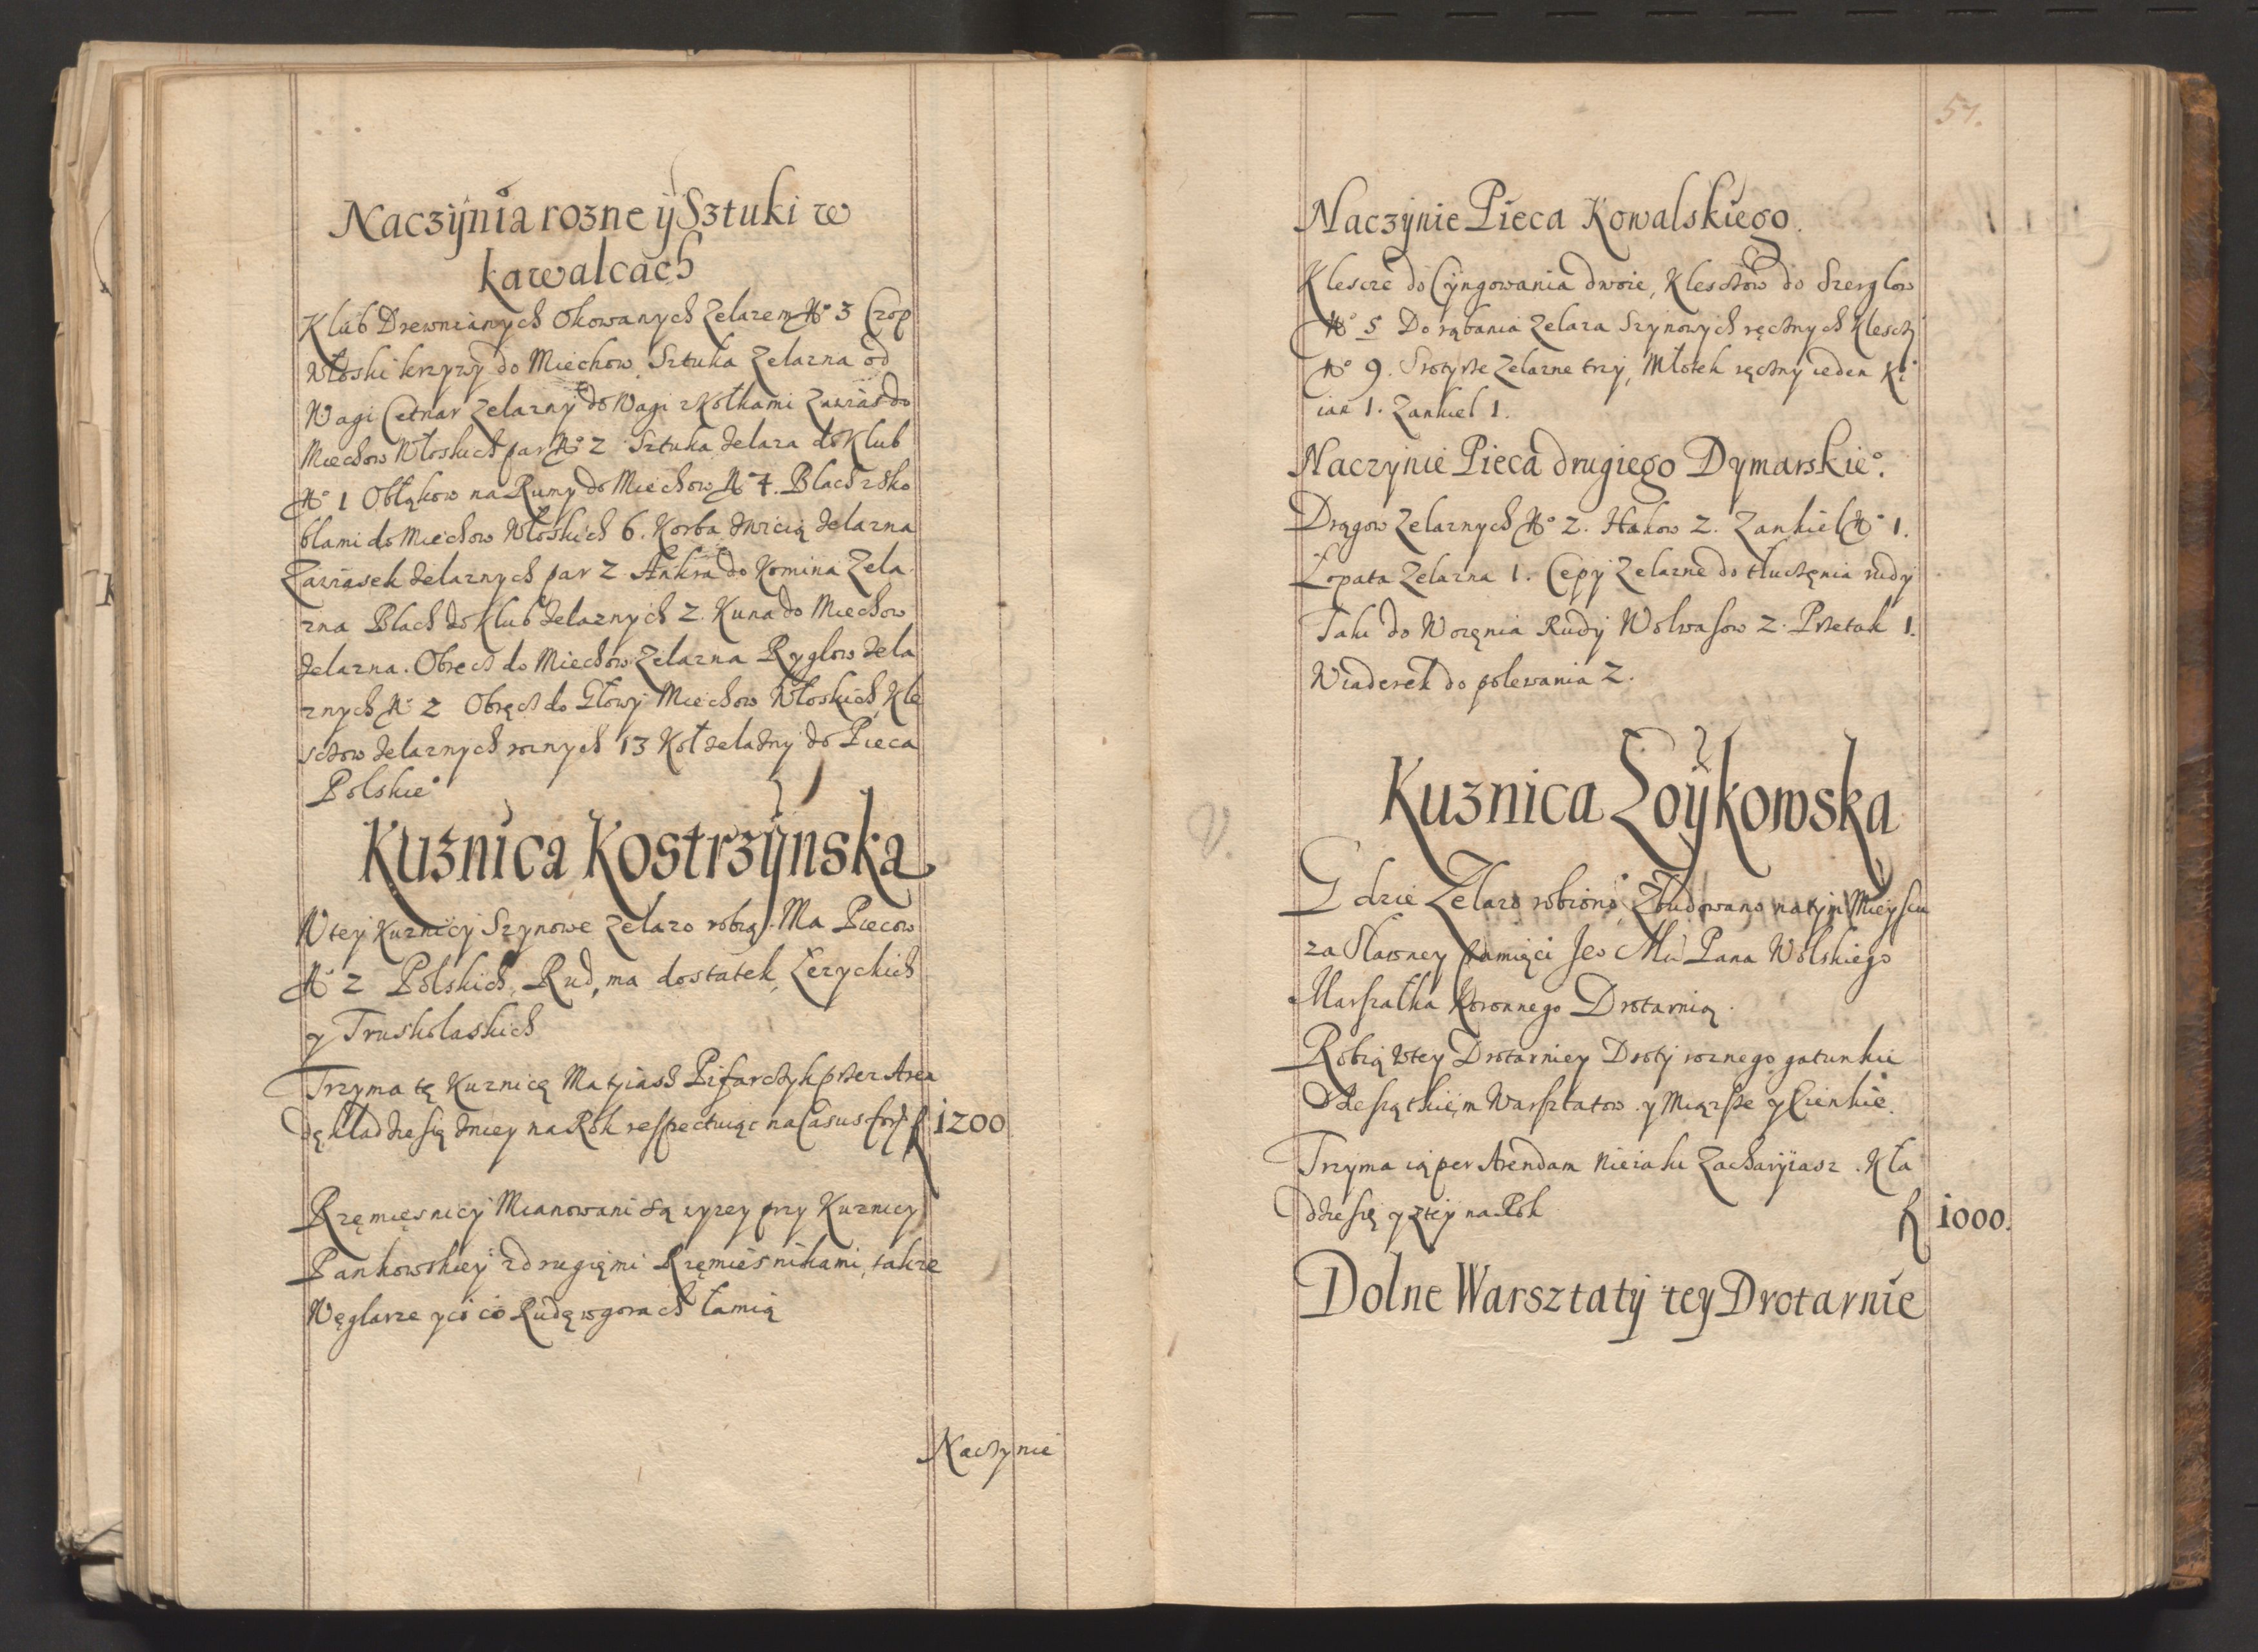 Naczÿnia rozne ÿ Sztuki w
kawalcach
Klub Drewnianych Okowanych Zelazem No 3 Czop
Włoski krzywy do Miechow Sztuka Zelazna od
Wagi Cetnar Zelazny do Wagi z Kołkami Zawias do
Miechow Włoskich par No 2 Sztuka Zelaza do Klub
No 1 Obłąkow na Rumy do Miechow No 4. Blach z sko
blami do Miechow Włoskich 6. Korba Zelazna
Zawiasek Zelaznych par 2 Ankra do Komina Zela
zna Blach do Klub Zelaznych 2. Kuna do Miechow
Zelazna. Obręcz do Miechow Zelazna Ryglow Zela
znych No 2 Obręcz do Głowy Miechow Włoskich, Kle
sczow Zelaznych roznych 13 Koł Zelazny do Pieca
Polskieo
Kuznica Kostrzÿnska
W tey Kuznicy Szynowe Zelazo robią. Ma Piecow
No 2 Polskich, Rud, ma dostatek, Łezyckich
y Truskolaskich
Trzyma tę Kuznicę Matyiasz Pisarczyk przez Aren
dę kładzie się z niey na Rok respectuiąc na Casus for: f 1200
Rzęmięsnicy Mianowani są wyzey przy Kuznicy
Pankowskiey z drugięmi Rzęmiesnikami, takze
Węglarze y ci co Rudę w gorach łamią
Naczynie
57.
Naczÿnie Pieca Kowalskiego.
Klescze do Cyngowania dwoie, Klesczow do Szerglow
No 5 Do rąbania Zelaza Szynowych ręcznych Klescz
No 9. Zelazne trzy, Młotek ręczny ieden Ki
ian 1. Zankiel 1.
Naczynie Pieca drugiego Dymarskieo.
Drągow Zelaznych No 2. Hakow 2. Zankiel No 1.
Łopata Zelazna 1. Cepy Zelazne do tłuczęnia rudy
Taki do Wozęnia Rudy Wolwasow 2. Przetak 1.
Wiaderek do polewania 2.
V.
Kuznica Łoÿkowska
Gdzie Zelazo robiono, Zbudowano na tym Mieyscu
za Sławney Pamięci Jeo Mci Pana Wolskiego
Marszałka Koronnego Drotarnią.
Robią w tey Drotarniey Droty roznego gatunku
Dziesiątkiem Warsztatow y Miąrsze y Cienkie.
Trzyma ią per Arendam nieiaki Zacharÿiasz. Kła
dzie się y z tey na Rok f 1000.
Dolne Warsztatÿ teÿ Drotarnie